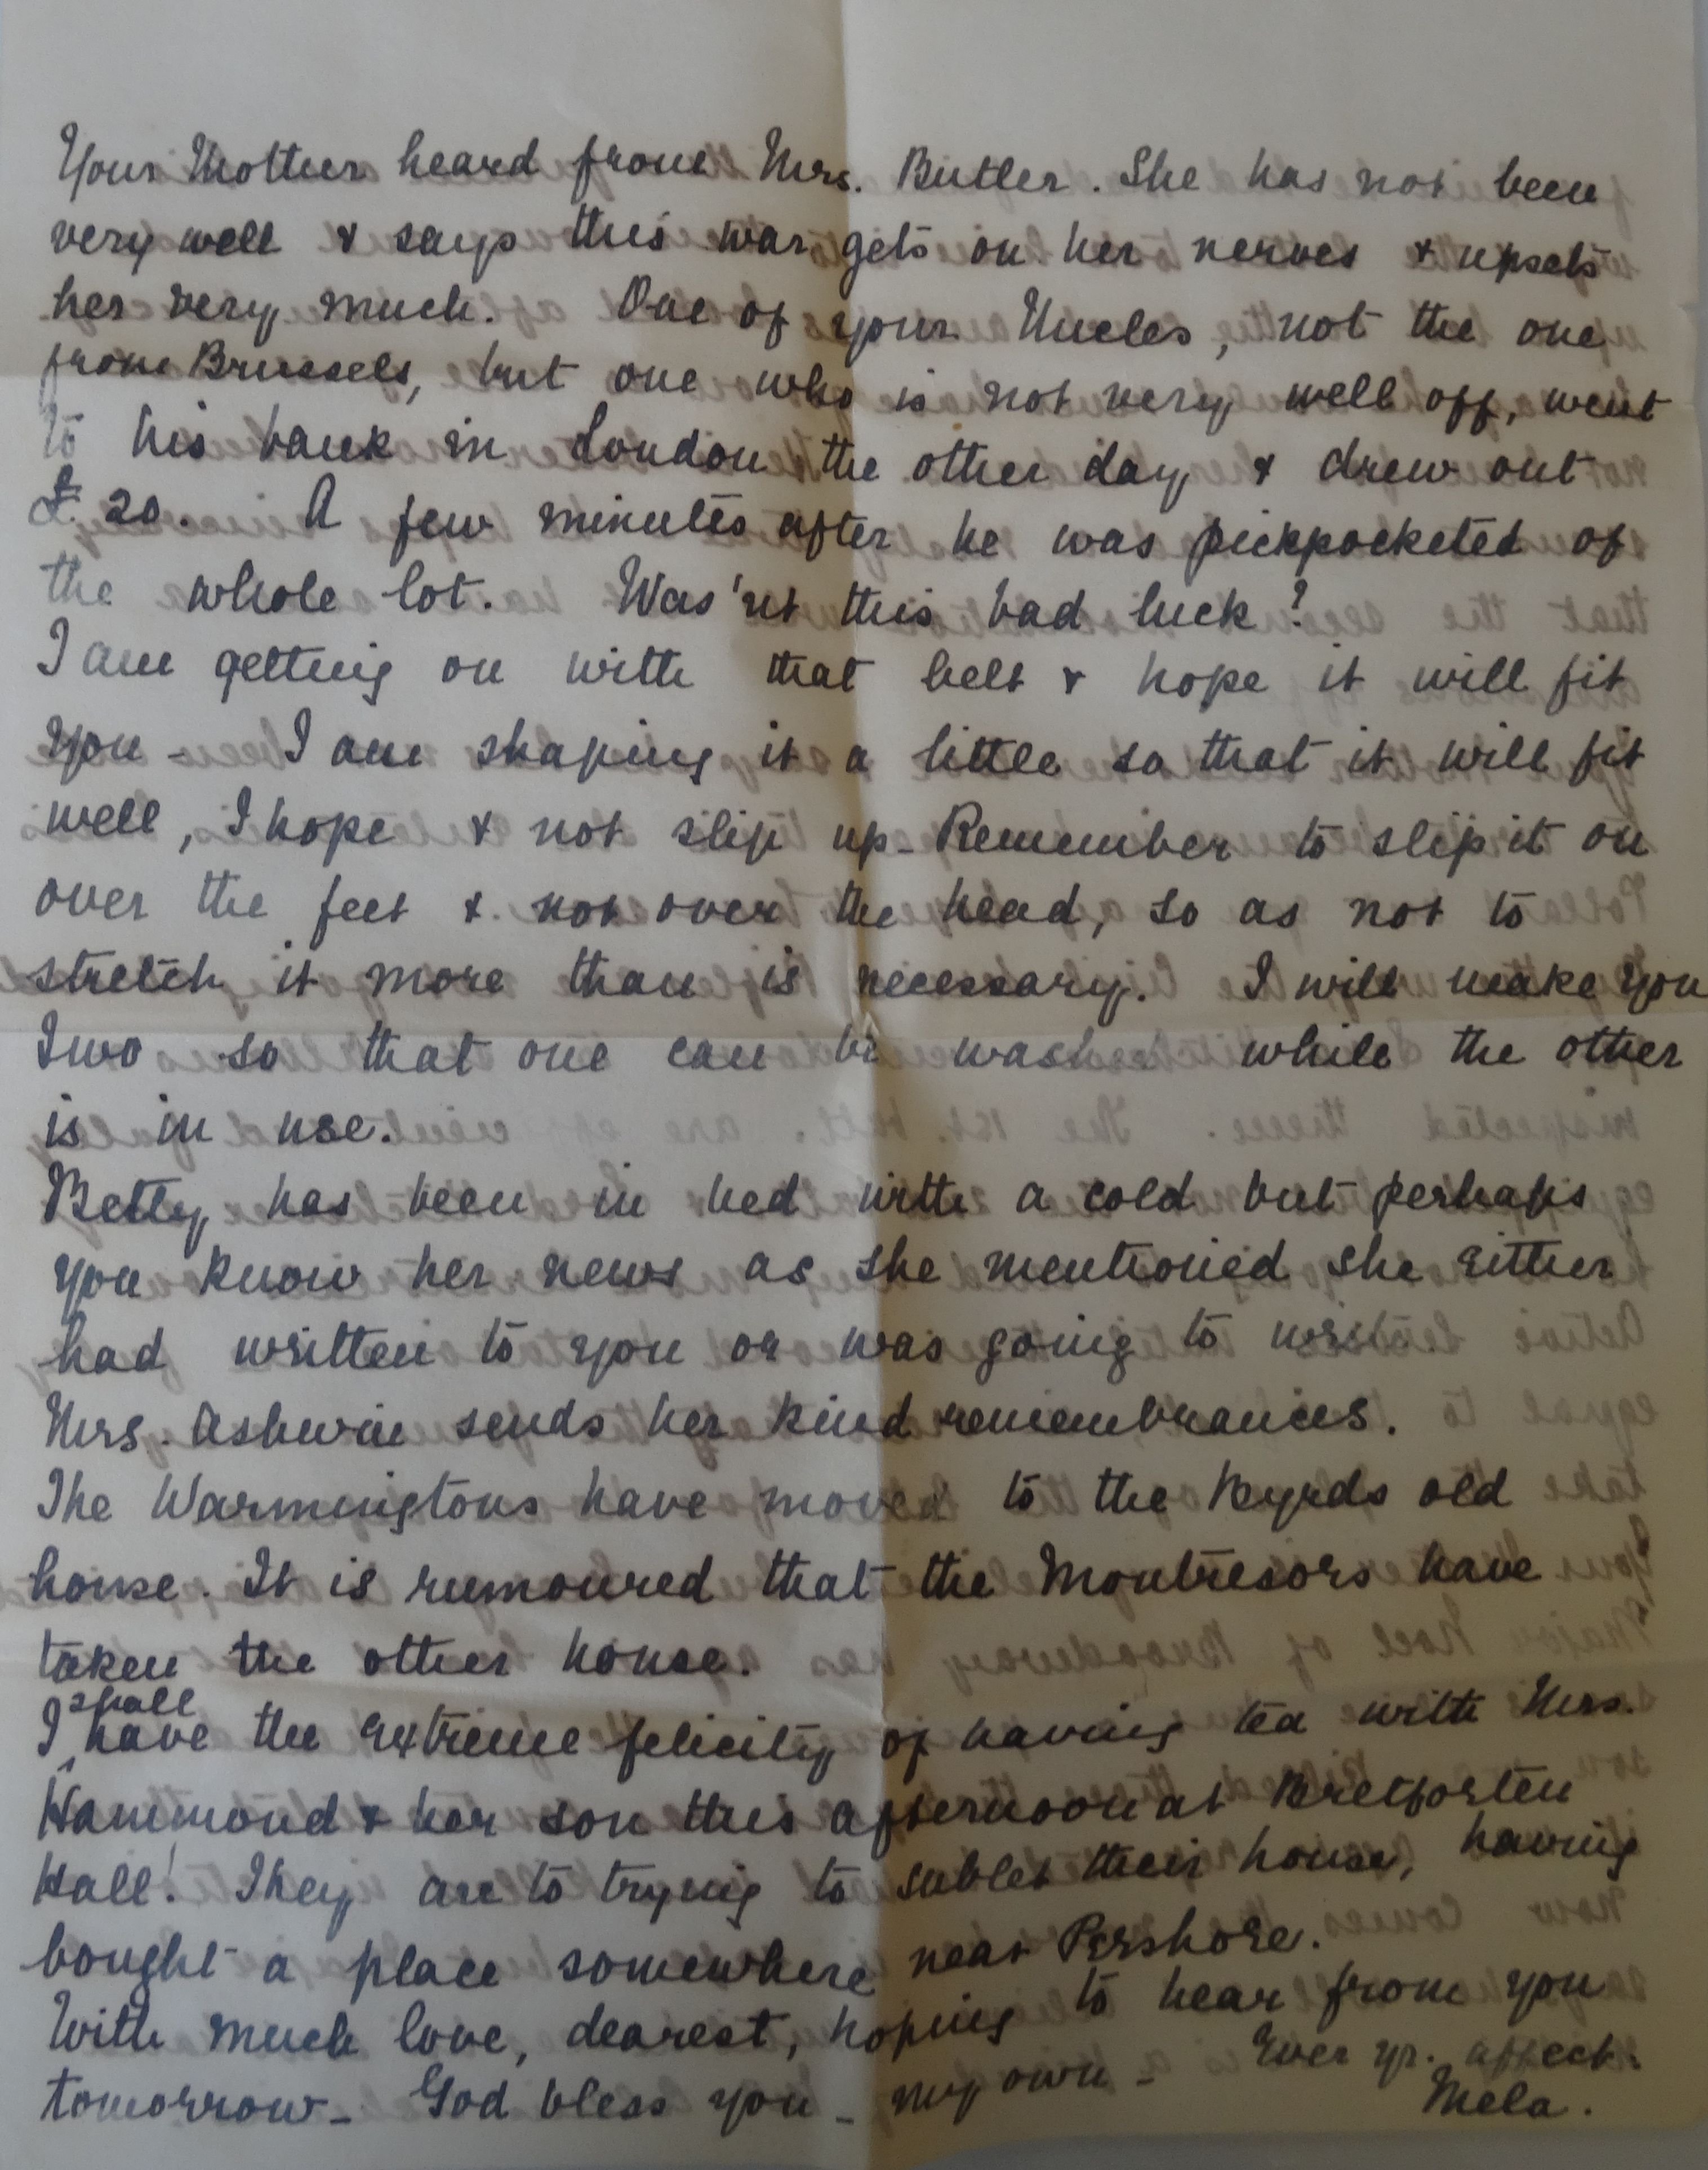 Your Mother heard from Mrs. Butler. She has not been
very well & says this war gets on her nerves & upsets
her very much. One of your Uncles, not the one
from Brussels, but one who is not very well off, went
to his bank in London the other day & drew out
£20. A few minutes after he was pickpocketed of
the whole lot. Was'nt this bad luck?
I am getting on with that belt & hope it will fit
you - I am shaping it a little so that it will fit
well, I hope & not slip up - Remember to slip it on
over the feet & not over the head, so as not to
stretch it more than is necessary. I will make you
two so that one can be washed while the other
is in use.
Betty has been in bed with a cold but perhaps
you know her news as she mentioned she either
had written to you or was going to write.
Mrs. Ashwin sends her kind remembrances.
The Warmingtons have moved to the Byrds old
house. It is rumoured that the Montresors have
taken the other house.
I shall have the extreme felicity of having tea with Mrs.
Hammond & her son this afternoon at Bretforten
Hall! They are to trying to sublet their house, having
bought a place somewhere near Pershore.
With much love, dearest, hoping to hear from you
tomorrow - God bless you - my own - Ever yr. affect.
Mela.